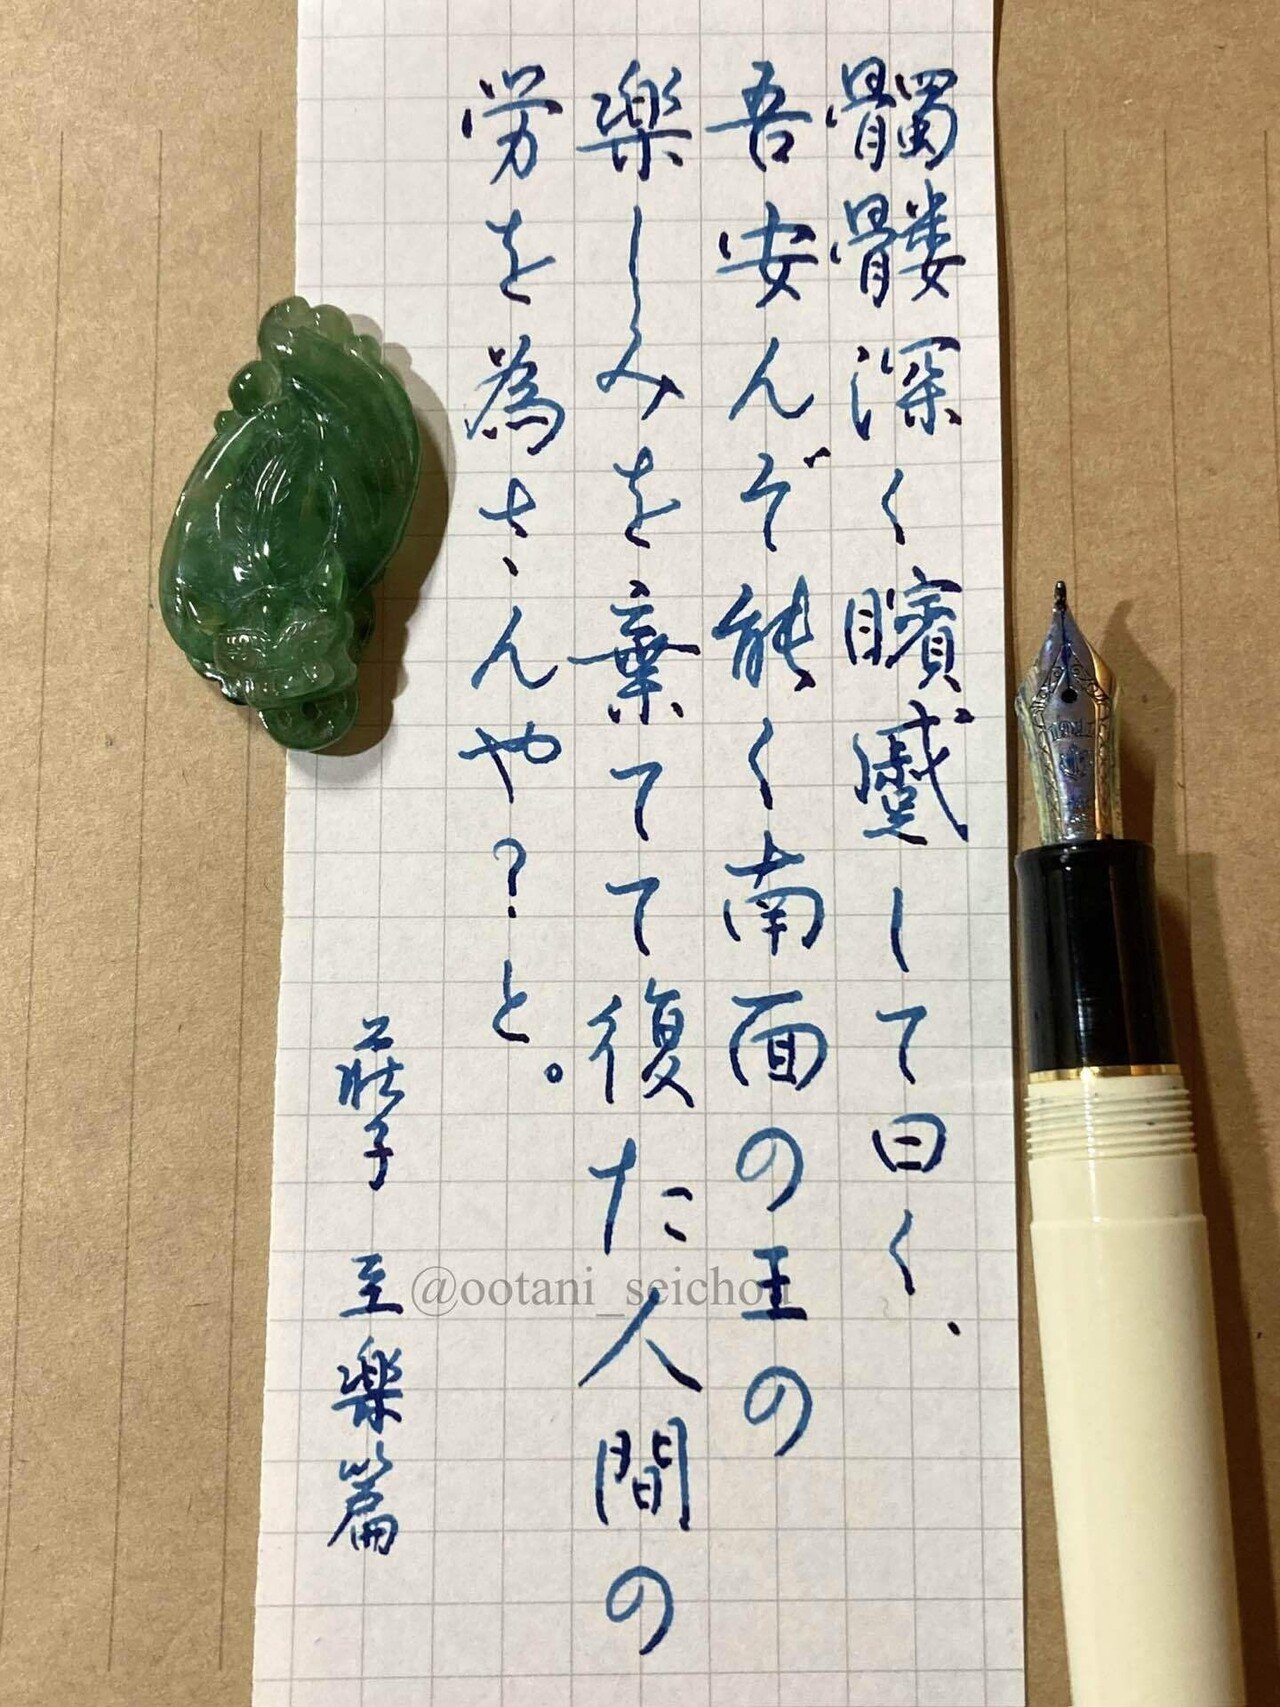 髑髏深く矉蹙して曰く、
吾安んぞ能く南面の王の
楽しみを棄てて復た人間の
労を為さんや?と。
荘子 至楽篇
@ootani_seichou